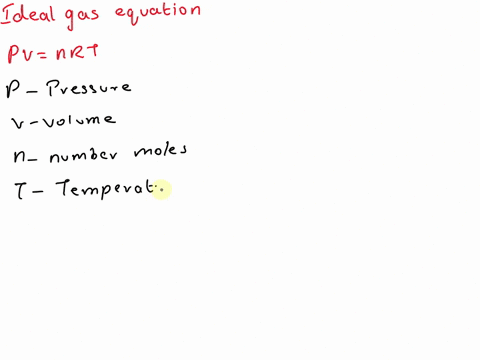 Ideal gas equation
PV = nRT
P - Pressure
V - volume
n - number moles
T - Temperat